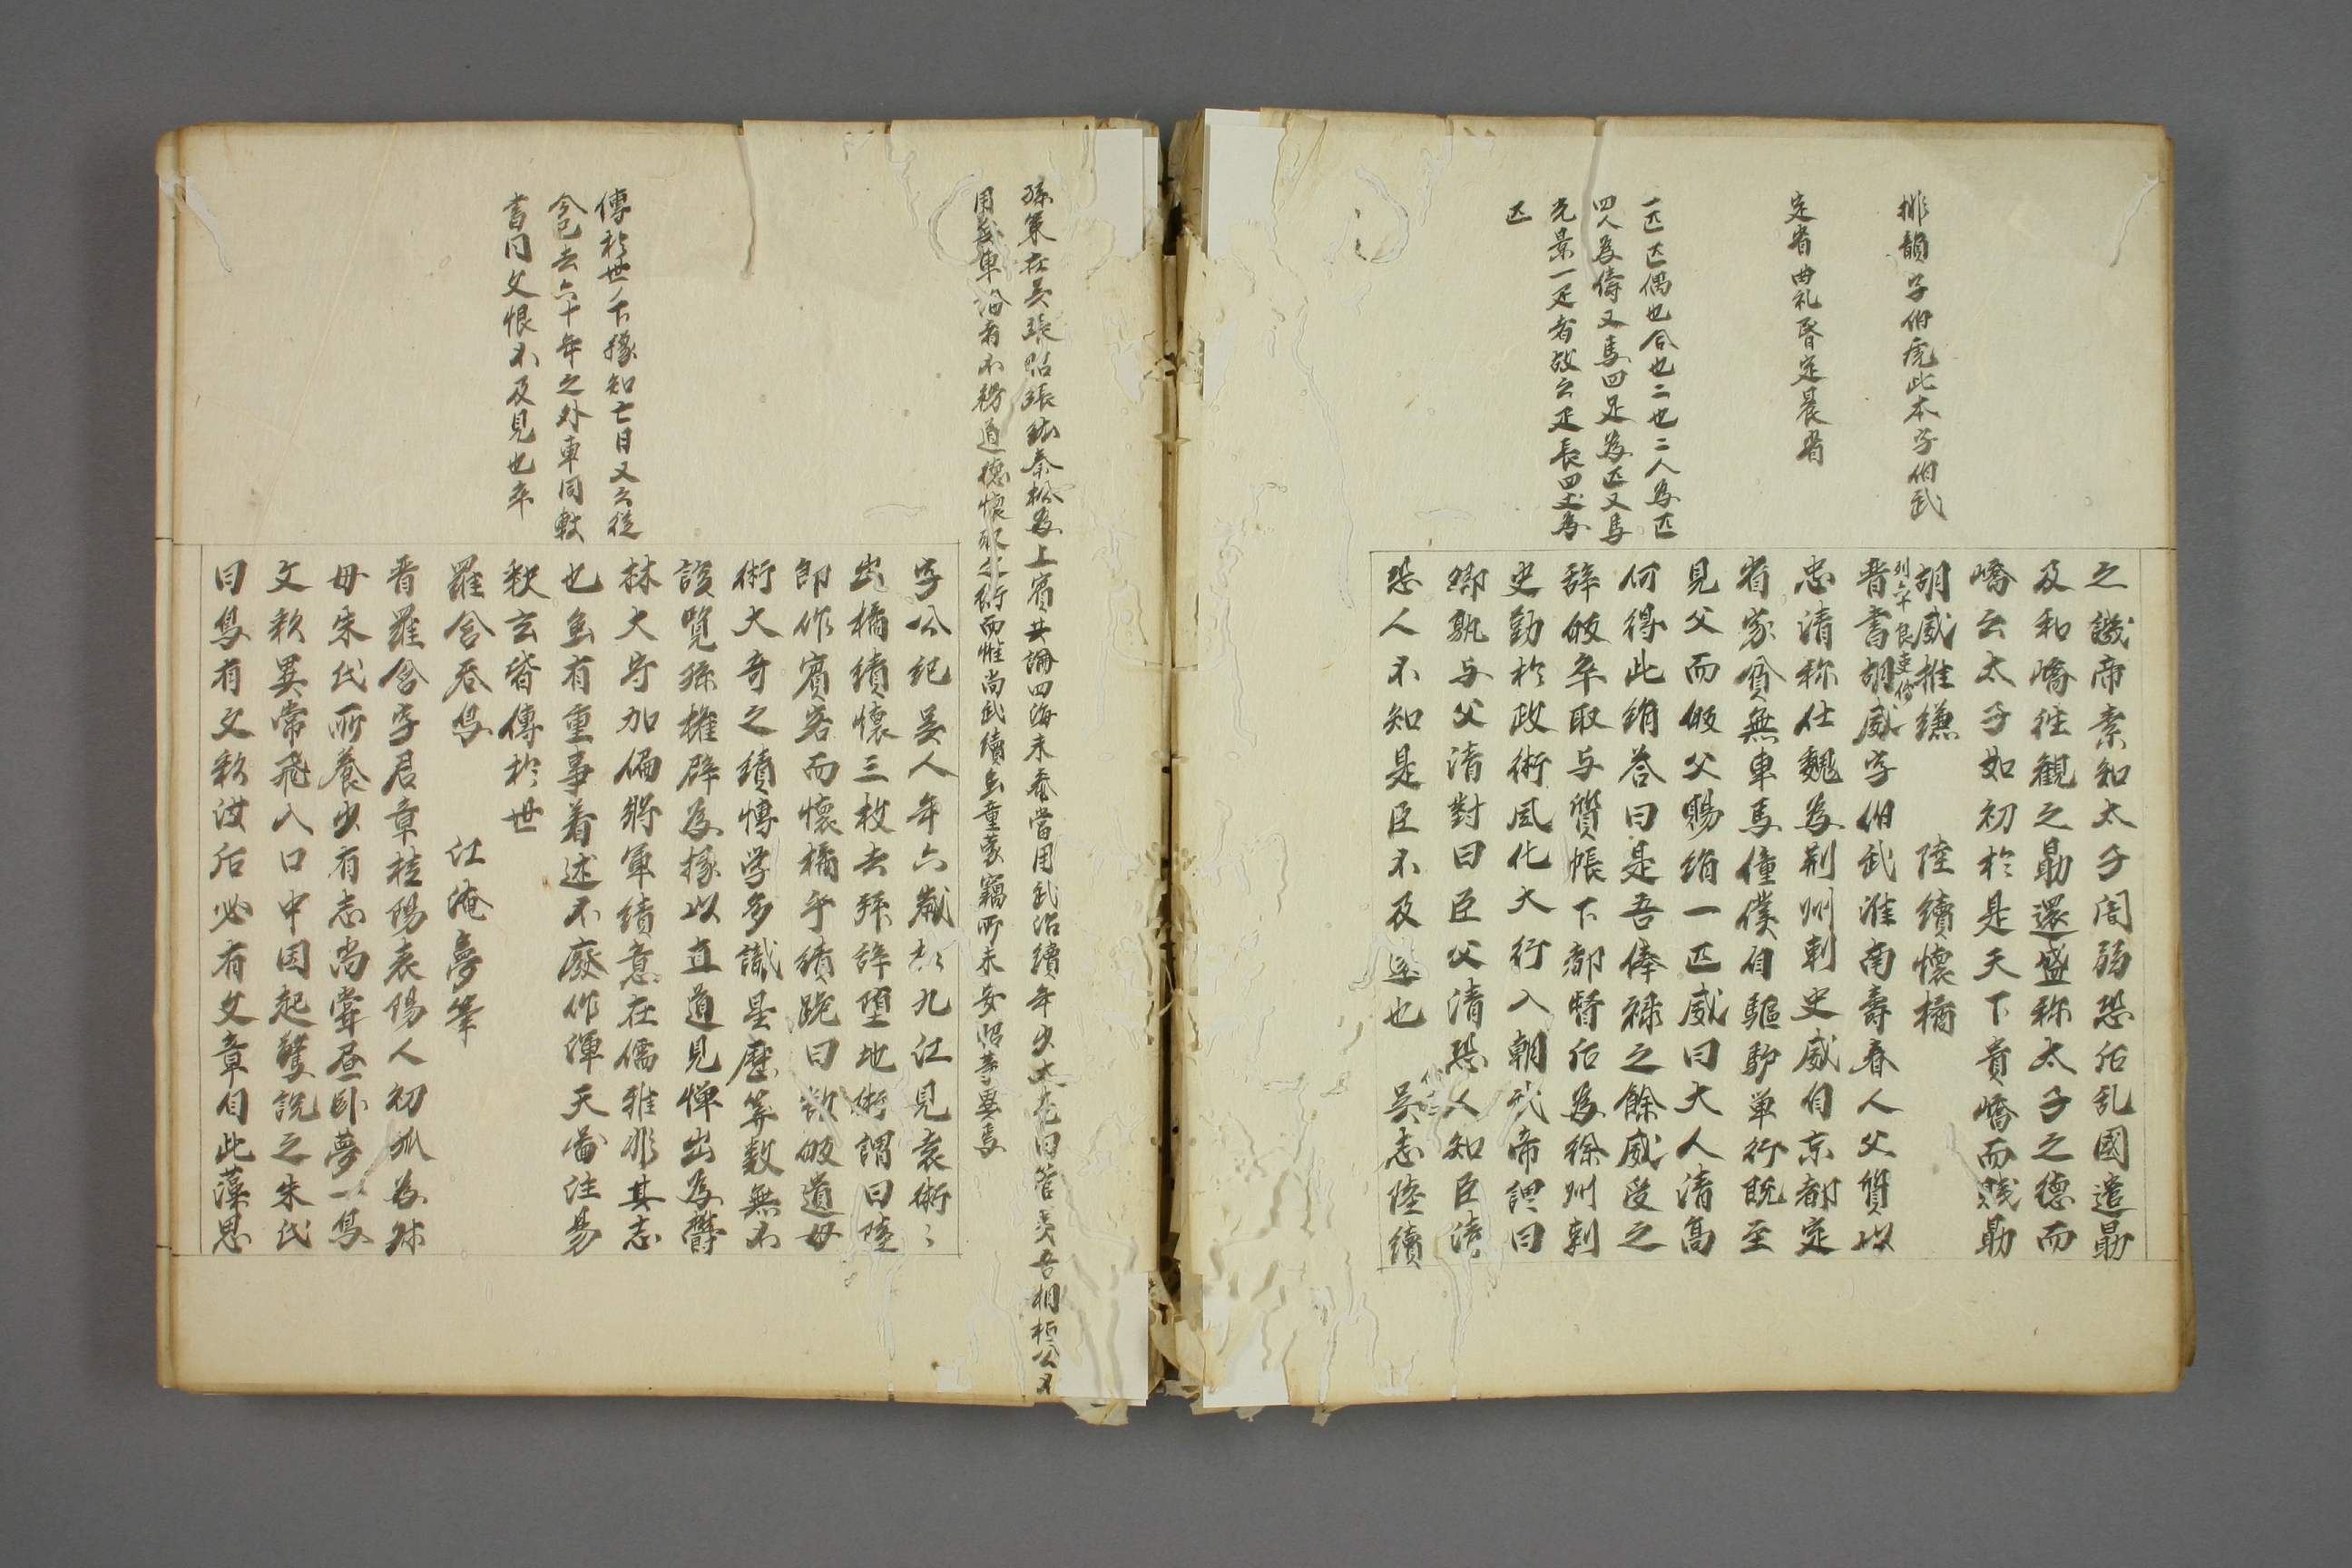 排韻字伯虎此本字伯武
定省曲礼昏定晨省
一匹匹偶也合也二也二人為匹
四人為儔又馬四足為匹又馬
光景一疋者故云疋長四丈為
匹
之譏帝素知太子闇弱恐后乱國遣勗
及和嶠往観之勗還盛称太子之德而
嶠云太子如初於是天下貴嶠而賎勗
胡威推縑 陸續懷橘
列六十良吏傳
晋書胡威字伯武淮南壽春人父質以
忠清称仕魏為荆州刺史威自京都定
省家貧無車馬僮僕自驅馿単行既至
見父而皈父賜絹一匹威曰大人清髙
何得此絹荅曰是吾俸禄之餘威受之
辞皈卒取与質帳下都督后為徐州刺
史勤於政術風化大行入朝武帝謂曰
卿孰与父清對曰臣父清恐人知臣清
恐人不知是臣不及遠也 吴志陸續
孫策在吴張昭張紘秦松為上賓共論四海未泰當用武治續年少末坐大声曰管夷吾相桓公不
用兵車今論者不務道德懷取之術而惟尚武續雖童蒙竊所未安昭等異焉
傳於世ノ下豫知亡日又云從
今已去六十年之外車同軌
書同文恨不及見也卒
字公紀吴人年六歳於九江見袁術〻
出橘績懷三枚去拜辞堕地術謂曰陸
郎作賓客而懷橘乎績跪曰欲皈遺母
術大奇之績愽学多識星歴筭数無不
該覧孫權辟為掾以直道見憚出為欝
林大守加偏将軍績意在儒雅非其志
也虽有重事着述不廢作渾天圖注易
釈玄皆傳於世
羅含吞鳥 江淹夢筆
晋羅含字君章桂陽耒陽人初孤為叔
母朱氏所養少有志尚嘗昼卧夢一鳥
文彩異常飛入口中因起驚説之朱氏
曰鳥有文彩汝后必有文章自此藻思